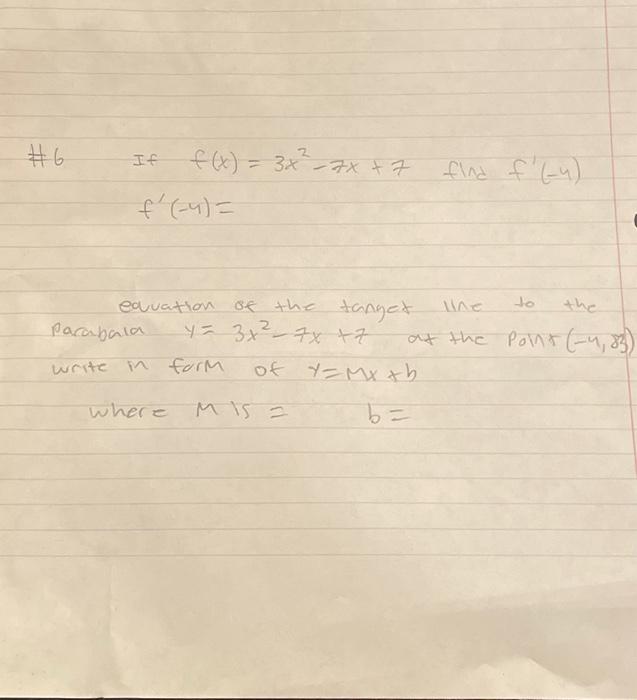 #6 If f(x) = 3x² - 7x + 7 find f'(-4)
f'(-4) =
equation of the tanget line to the
Parabala y = 3x² - 7x + 7 at the Point (-4, 83)
write in form of y = Mx + b
where M is = b =